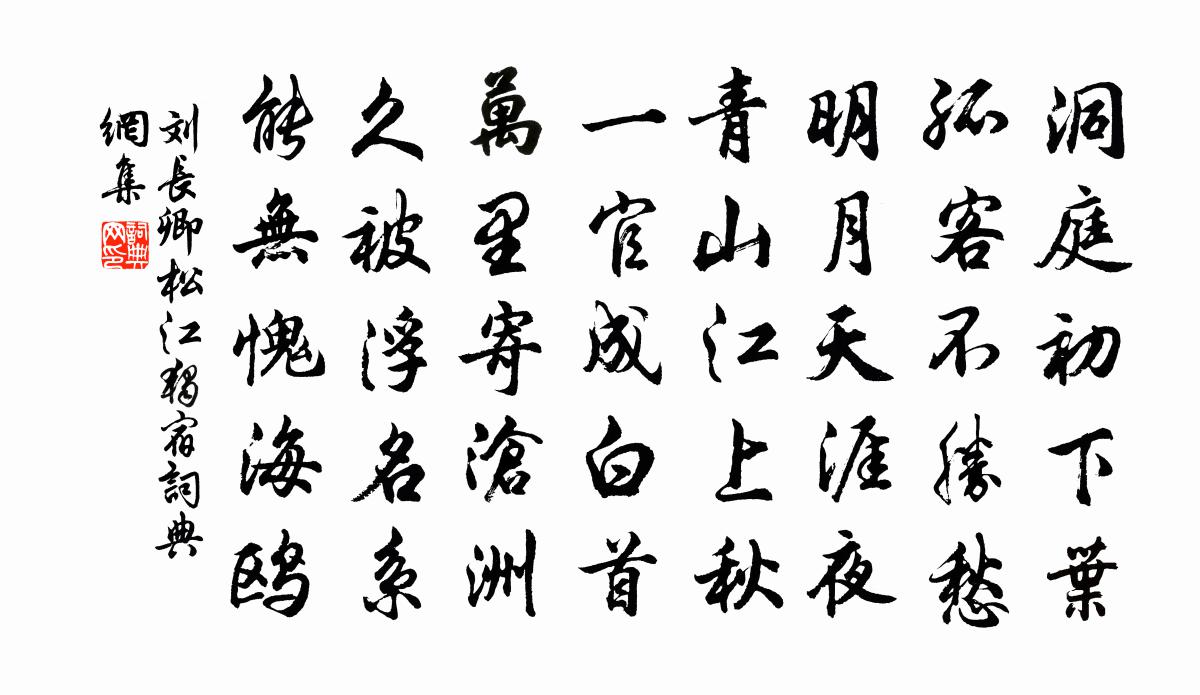 洞庭初下葉
孤客不勝愁
明月天涯夜
青山江上秋
一官成白首
萬里寄滄洲
久被浮名系
能無愧海鸥
刘長卿松江獨宿詞典
網集
詞典
网印